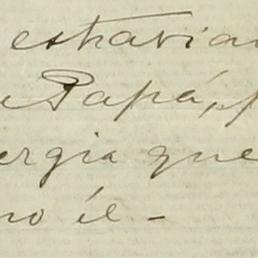 estravian
Papá, p
ergia que
no él -